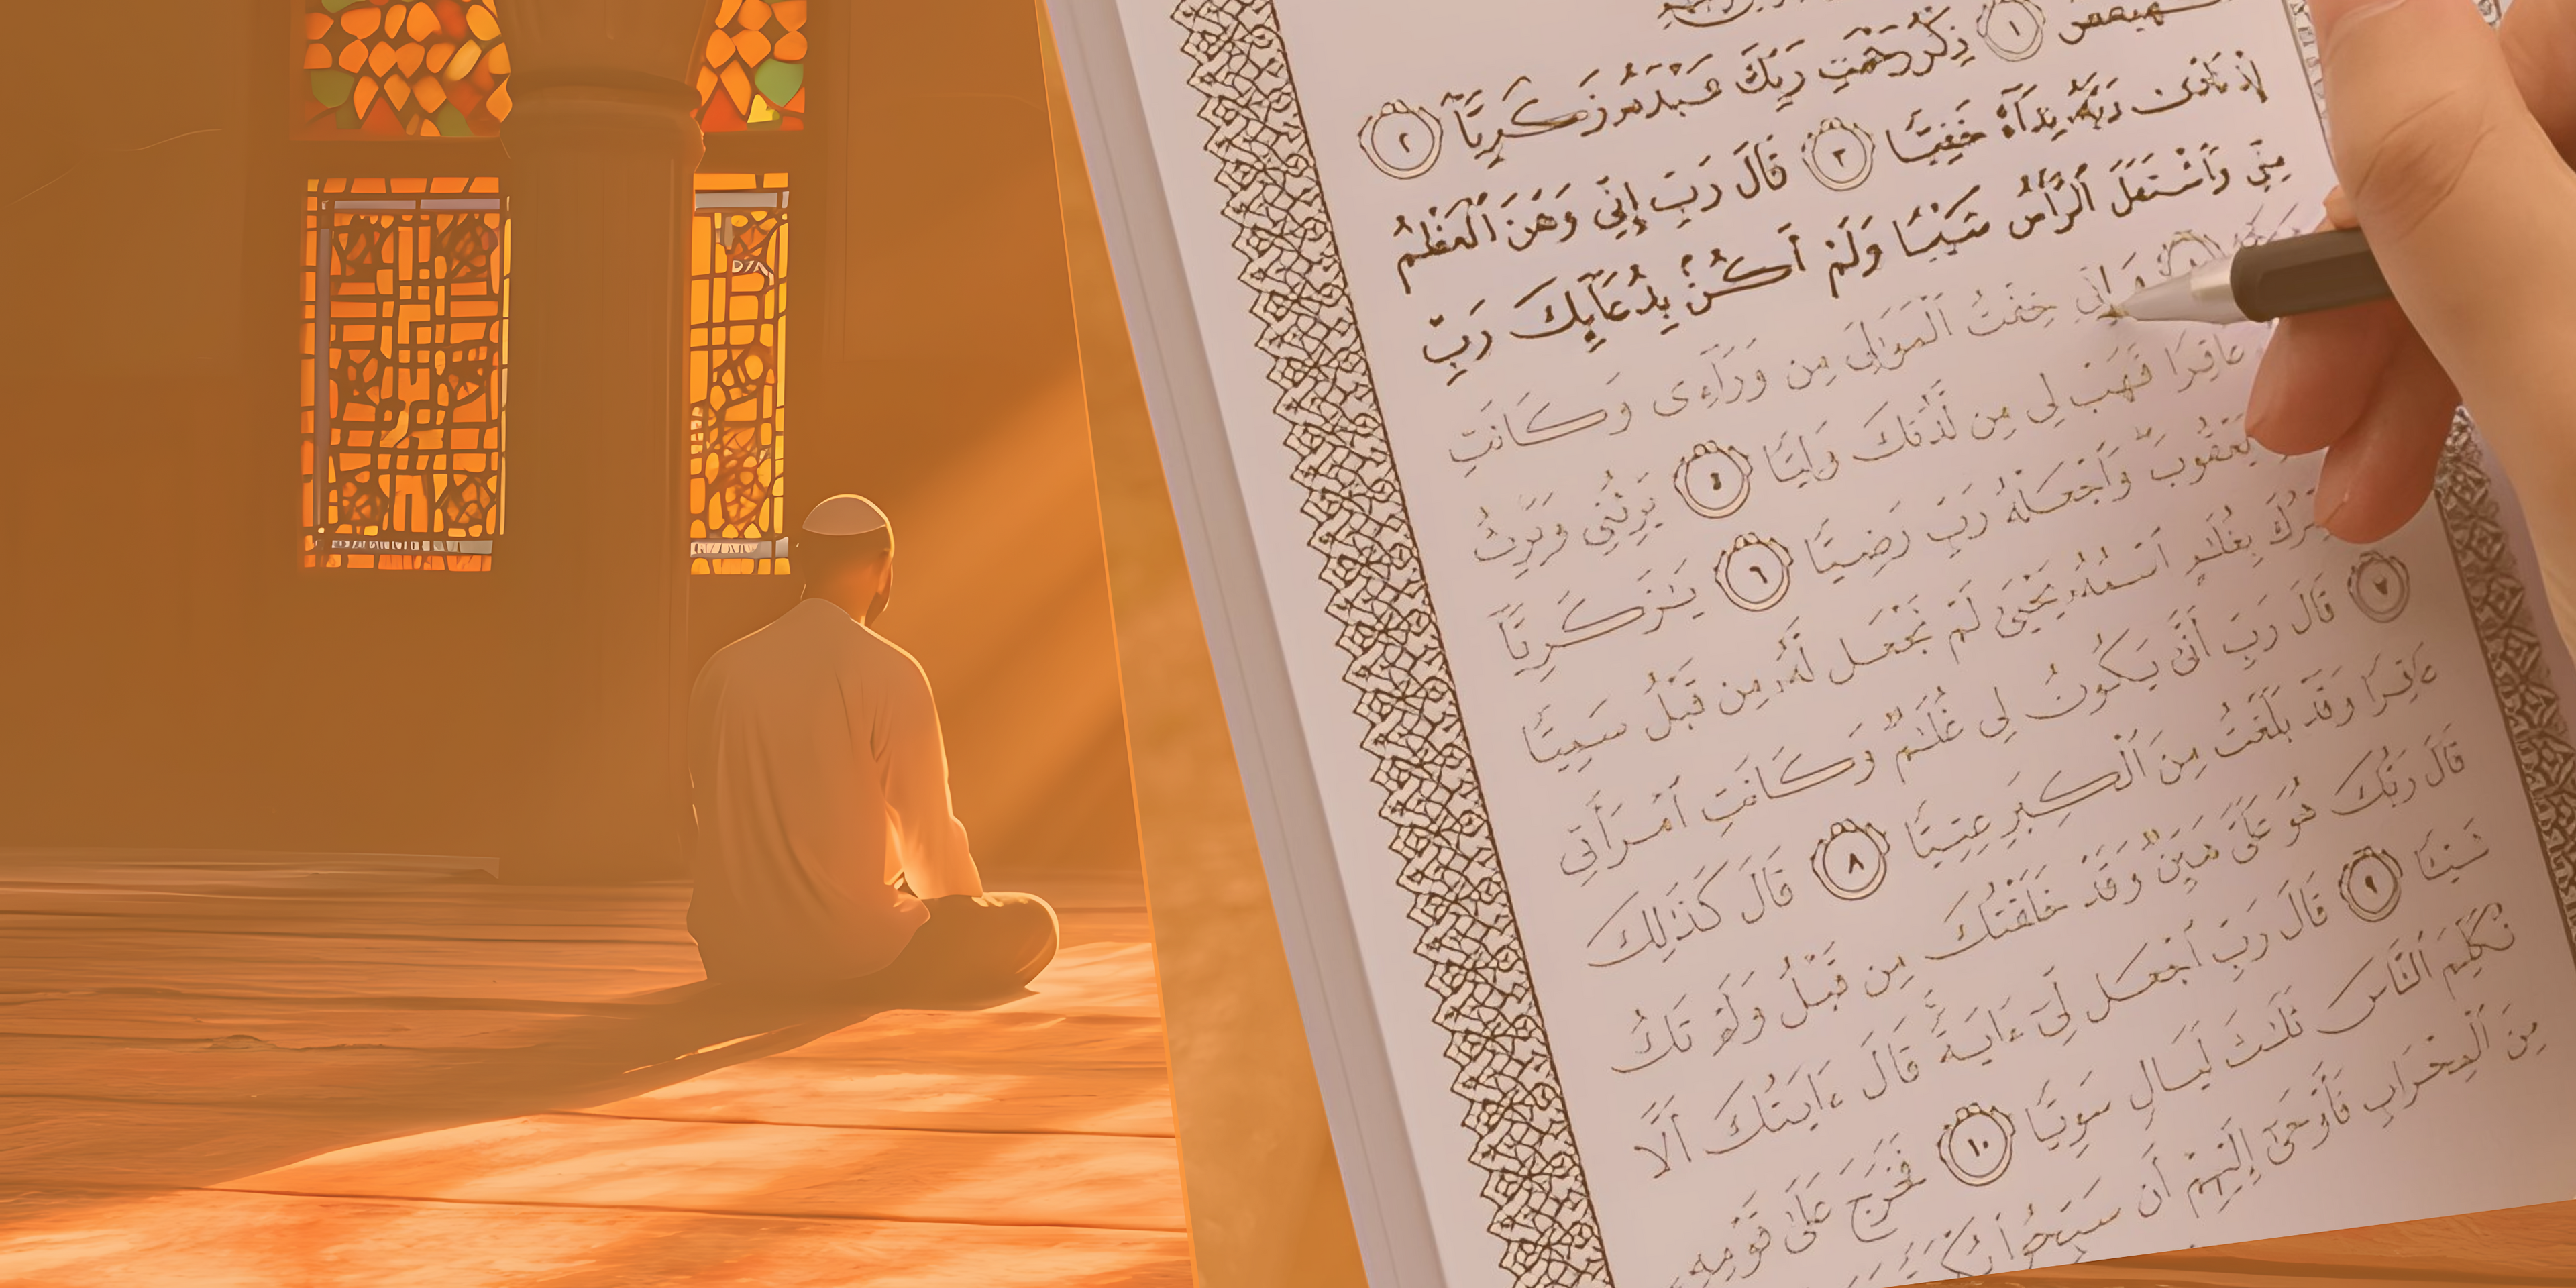 كهيعص ١ ذِكْرُ رَحْمَتِ رَبِّكَ عَبْدَهُۥ زَكَرِيَّآ ٢
إِذْ نَادَىٰ رَبَّهُۥ نِدَآءً خَفِيًّا ٣ قَالَ رَبِّ إِنِّي وَهَنَ ٱلْعَظْمُ
مِنِّي وَٱشْتَعَلَ ٱلرَّأْسُ شَيْبًا وَلَمْ أَكُنۢ بِدُعَآئِكَ رَبِّ
وَإِنِّي خِفْتُ ٱلْمَوَٰلِيَ مِن وَرَآءِى وَكَانَتِ
عَاقِرًا فَهَبْ لِي مِن لَّدُنكَ وَلِيًّا ٤ يَرِثُنِي وَيَرِثُ
يَعْقُوبَ وَٱجْعَلْهُ رَبِّ رَضِيًّا ٦ يَٰزَكَرِيَّآ
بِغُلَٰمٍ ٱسْمُهُۥ يَحْيَىٰ لَمْ نَجْعَل لَّهُۥ مِن قَبْلُ سَمِيًّا
٧ قَالَ رَبِّ أَنَّىٰ يَكُونُ لِي غُلَٰمٌ وَكَانَتِ ٱمْرَأَتِي
عَاقِرًا وَقَدْ بَلَغْتُ مِنَ ٱلْكِبَرِ عِتِيًّا ٨ قَالَ كَذَٰلِكَ
قَالَ رَبُّكَ هُوَ عَلَىَّ هَيِّنٌ وَقَدْ خَلَقْتُكَ مِن قَبْلُ وَلَمْ تَكُ
شَيْئًا ٩ قَالَ رَبِّ ٱجْعَل لِّيٓ ءَايَةً قَالَ ءَايَتُكَ أَلَّا
تُكَلِّمَ ٱلنَّاسَ ثَلَٰثَ لَيَالٍ سَوِيًّا ١٠ فَخَرَجَ عَلَىٰ قَوْمِهِۦ
مِنَ ٱلْمِحْرَابِ فَأَوْحَىٰٓ إِلَيْهِمْ أَن سَبِّحُوا۟